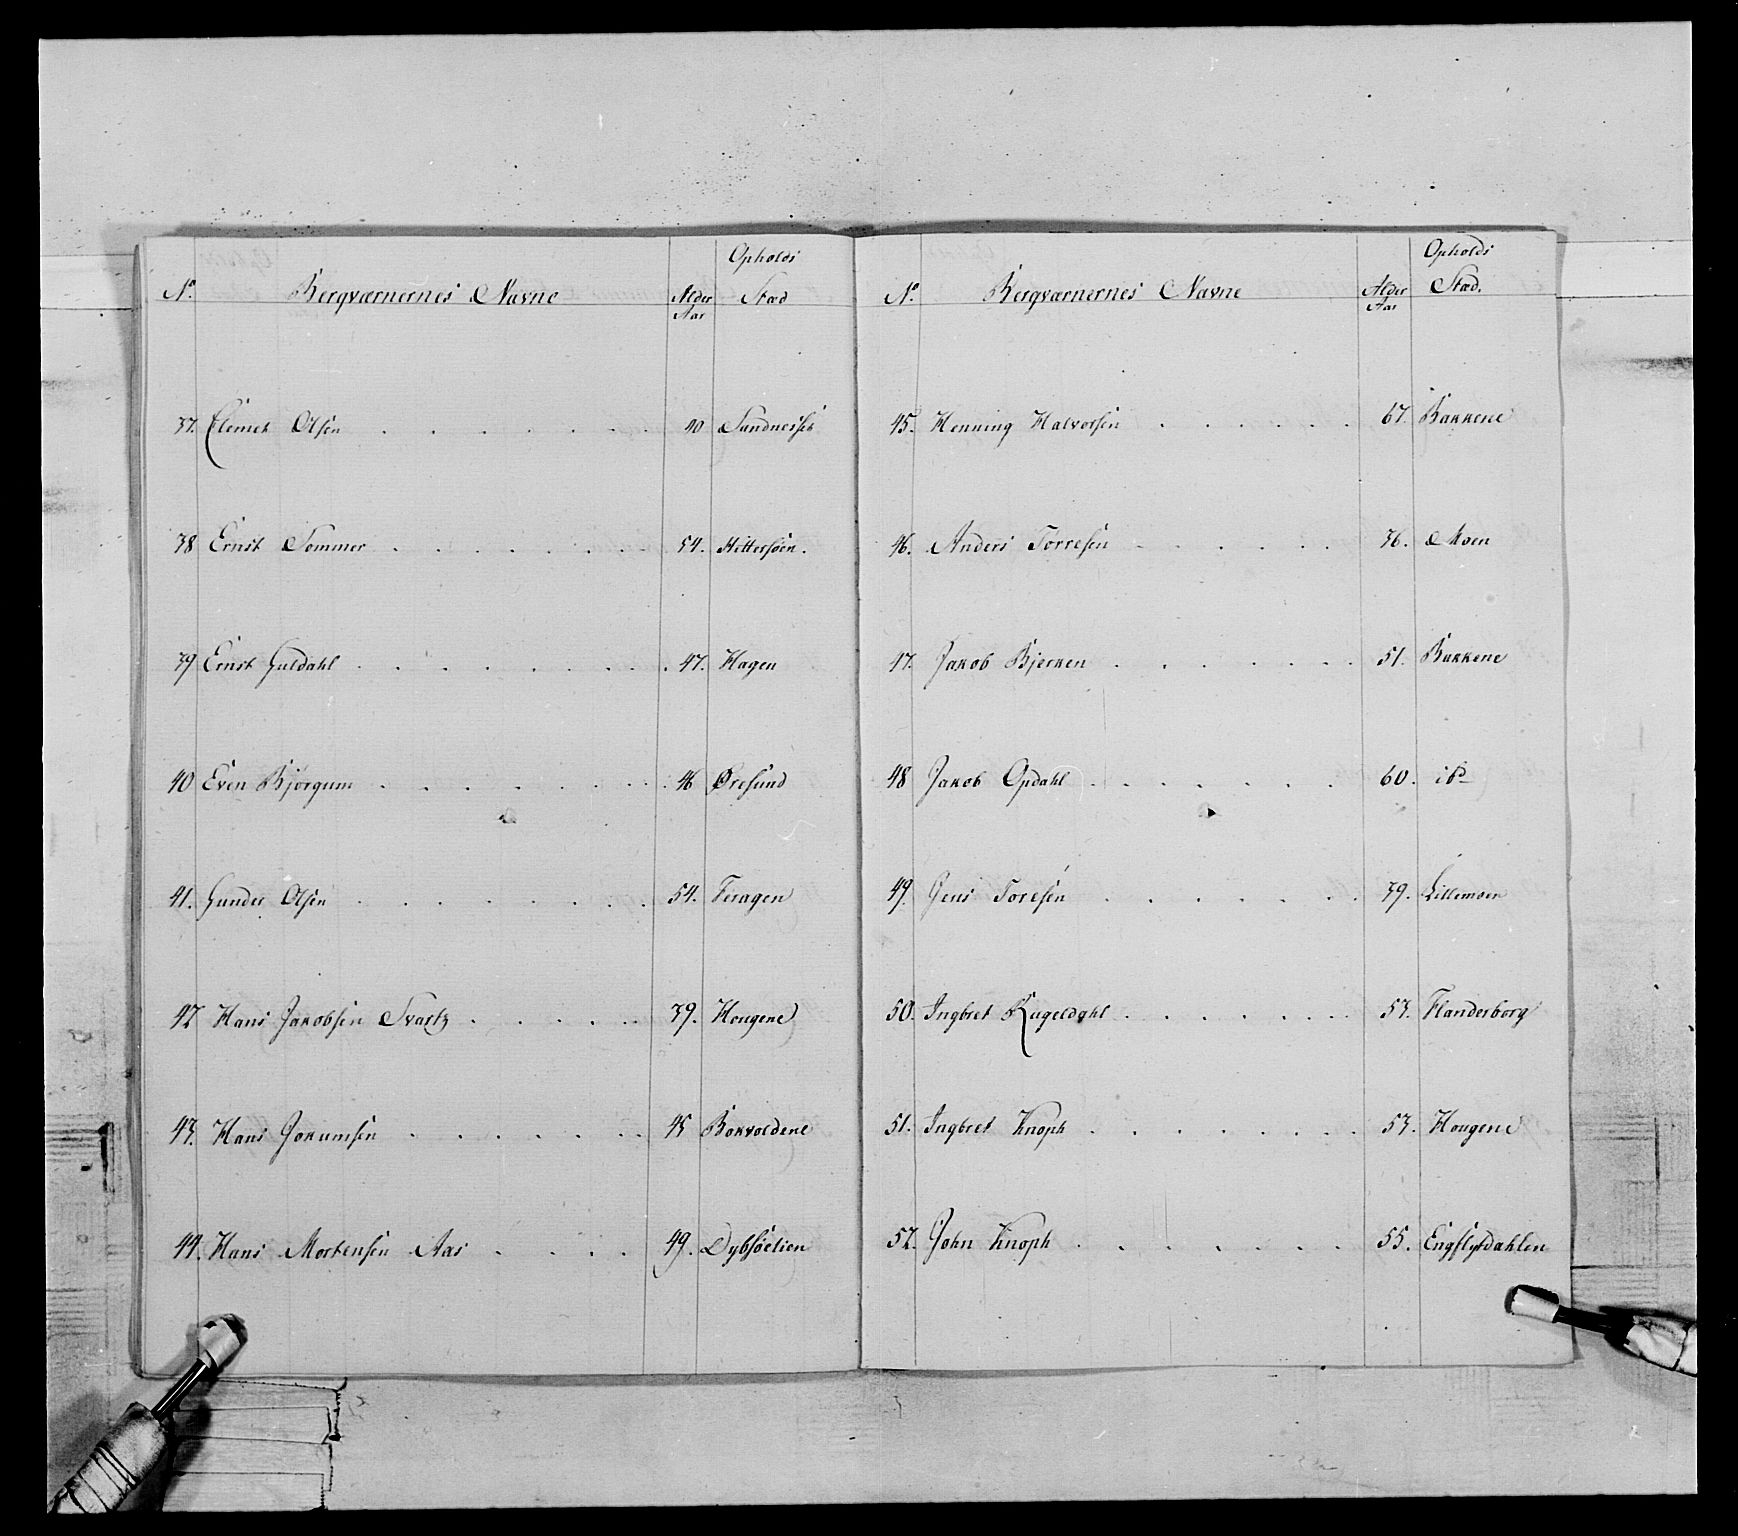 Opholds
No. Bergværnernes Navne Alder Stæd
Aar
37. Elemet Olsen 40 Sandnesset
38 Ernst Sommer 54. Hittersöen.
39 Ernst Guldahl 47. Hagen
40 Even Bjørgum 46 Øresund
41. Gunder Olsen 54. Feragen
42 Hans Jakobsen Svartz 39. Hougene
43. Hans Jokumsen 45 Bokvoldene
44. Hans Mortensen Aas 49. Dybsöelien
Opholds
No. Bergværnernes Navne Alder Stæd.
Aar
45. Henning Halvorsen 67. Bakkene
46. Anders Torresen 36. Moen
47. Jakob Bjerken 51. Bakkene
48 Jakob Opdahl 60. ibd
49. Jens Toresen 39. Lillemoen
50. Ingbret Kugeldahl 53. Flanderborg
51. Ingbret Knoph 53. Hougene
52. John Knoph 55. Engflÿdahlen